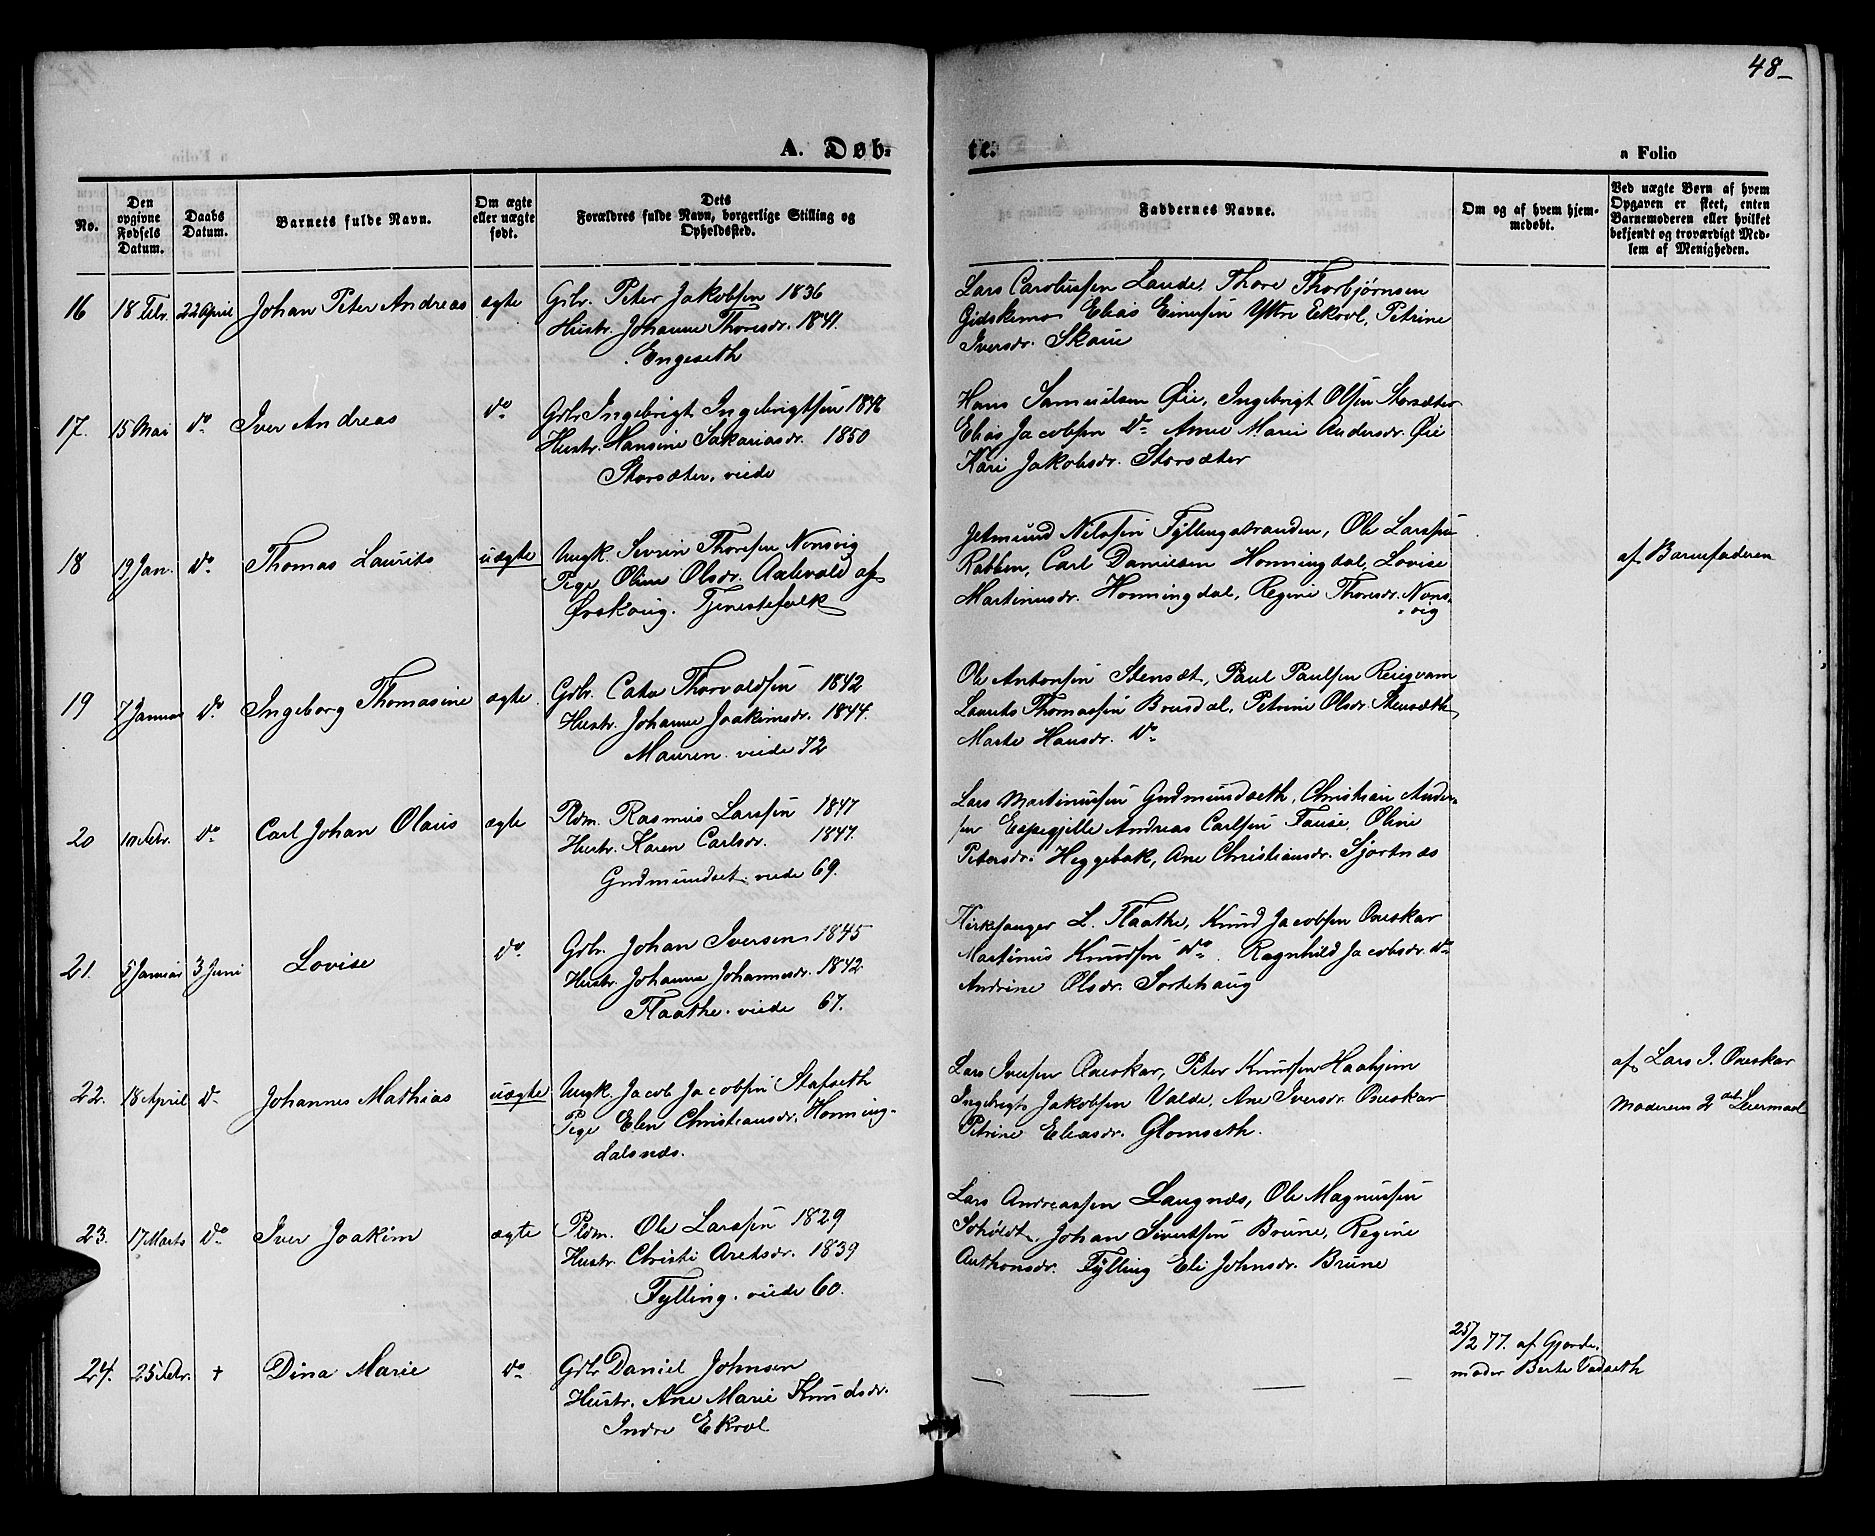 48
A. Døb-
te.
a Folio
No.
Den opgivne Fødsels Datum.
Daabs Datum.
Barnets fulde Navn.
Om ægte eller uægte født.
Dets Forældres fulde Navn, borgerlige Stilling og Opholdssted.
Faddernes Navne.
Om og af hvem hjemmedøbt.
Ved uægte Børn af hvem Opgaven er skeet, enten Barnemoderen eller hvilket bekjendt og troværdigt Medlem af Menigheden.
16 18 Febr. 22 April Johan Peter Andreas ægte Grbr. Peter Jakobsen 1836
Hustr. Johanne Thoresdr. 1841.
Engeseth
Lars Carolussen Lande, Thore Thorbjørnsen
Gidskemo Elias Einersen Yttre Ekrol, Petrine
Iversdr. Skare
17. 15 Mai do Iver Andreas do Grbr Ingebrigt Ingebrigtsen
Hustr. Hansine Sakariasdr. 1850
Storsæter, viede
Hans Samuelsen Øie, Ingebrigt Olsen Storsæter
Elias Jacobsen do Anne Marie Andersdr. Øie
Kari Jakobsdr. Storsæter
18 19 Jan. do Thomas Laurits uægte Ungk. Sevrin Thoresen Nonsvig
Pige Oline Olsdr. Aalevold af
Ørskoug. Tjenestefolk
Jetmund Nilssen Fyllingstranden, Ole Larssen
Rabben, Carl Danielsen Honningdal, Lovise
Martinusdr. Honningdal, Regine Thoresdr. Nons-
vig
af Barnefaderen
19 7 Januar do Ingeborg Thomasine ægte. Grbr. Cato Thorvaldsen 1842
Hustr. Johanne Joakimsdr. 1844.
Mauren. viede 72
Ole Antonsen Stensæt, Paul Paulsen Reiqvam
Laurits Thomassen Brusdal, Petrine Olsdr. Stensæth
Marte Hansdr. do
20 10 Febr. do Carl Johan Olaus ægte Pldm. Rasmus Larssen 1847
Hustr. Karen Carlsdr. 1847.
Gudmundset. viede 69.
Lars Martinussen Gudmundsæth, Christian Ander-
sen Espegjille Andreas Carlsen Fause, Oline
Petersdr. Heggebak, Ane Christiansdr. Sjortnæs
21. 5 Januar 3 Juni Lovise do Grbr. Johan Iversen 1845
Hustr. Johanne Johannesdr. 1842
Flaathe. viede 67.
Kirksanger L. Flaathe, Knud Jacobsen Oueskar
Martinus Knudsen do. Ragnhild Jacobsdr. do
Andrine Olsdr. Sortehaug
22. 18 April do Johannes Mathias uægte Ungk. Jacob Jacobsen Stafseth
Pige Elen Christiansdr. Honning-
dalsnæs.
Lars Iversen Oueskar, Peter Knudsen Haahjem
Ingebrigt Jakobsen Valde, Ane Iversdr. Oueskar
Petrine Eliasdr. Glomseth.
af Lars I. Oueskar
Moderens 2det Leiermaal
23. 17 Marts do Iver Joakim ægte Pldm. Ole Larssen 1829
Hustr. Christi Aretsdr. 1839
Fylling. viede 60.
Lars Andreassen Langnæs, Ole Magnussen
Soholdt, Johan Sivertsen Brune, Regine
Anthonsdr. Fylling Eli Johnsdr. Brune
24. 25 Febr. + Dina Marie do Grbr Daniel Johnsen
Hustr. Ane Marie Knudsdr.
Indre Ekrol
25/2 77. af Gjorde-
moder Berte Vadseth